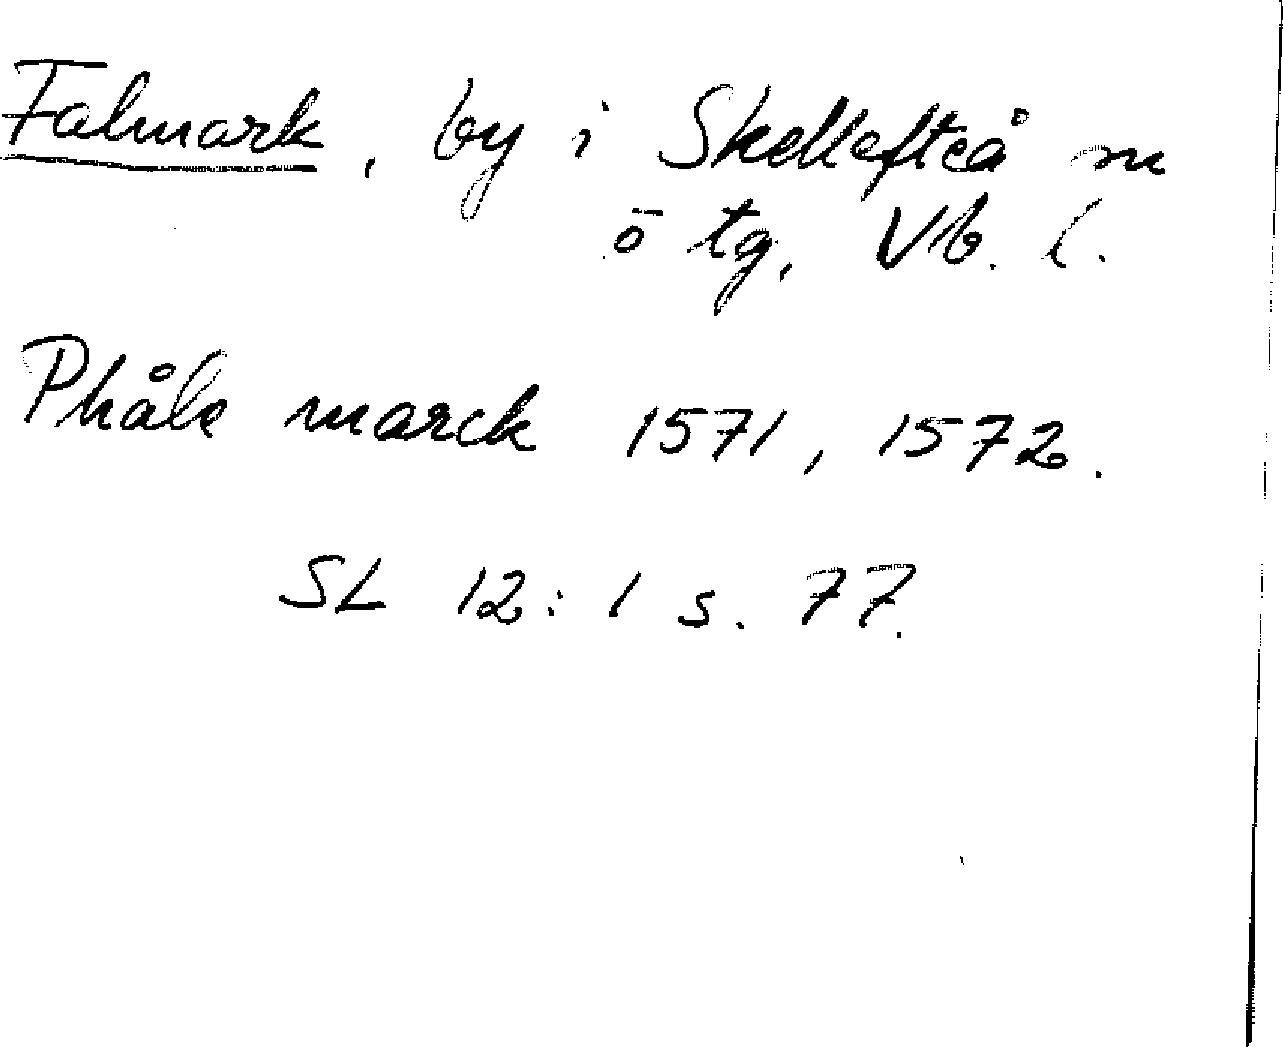 Falmark, by i Skellefteå m
ö tg, Vb. l.
Phåle marck 1571, 1572.
SL 12:1 s. 77.